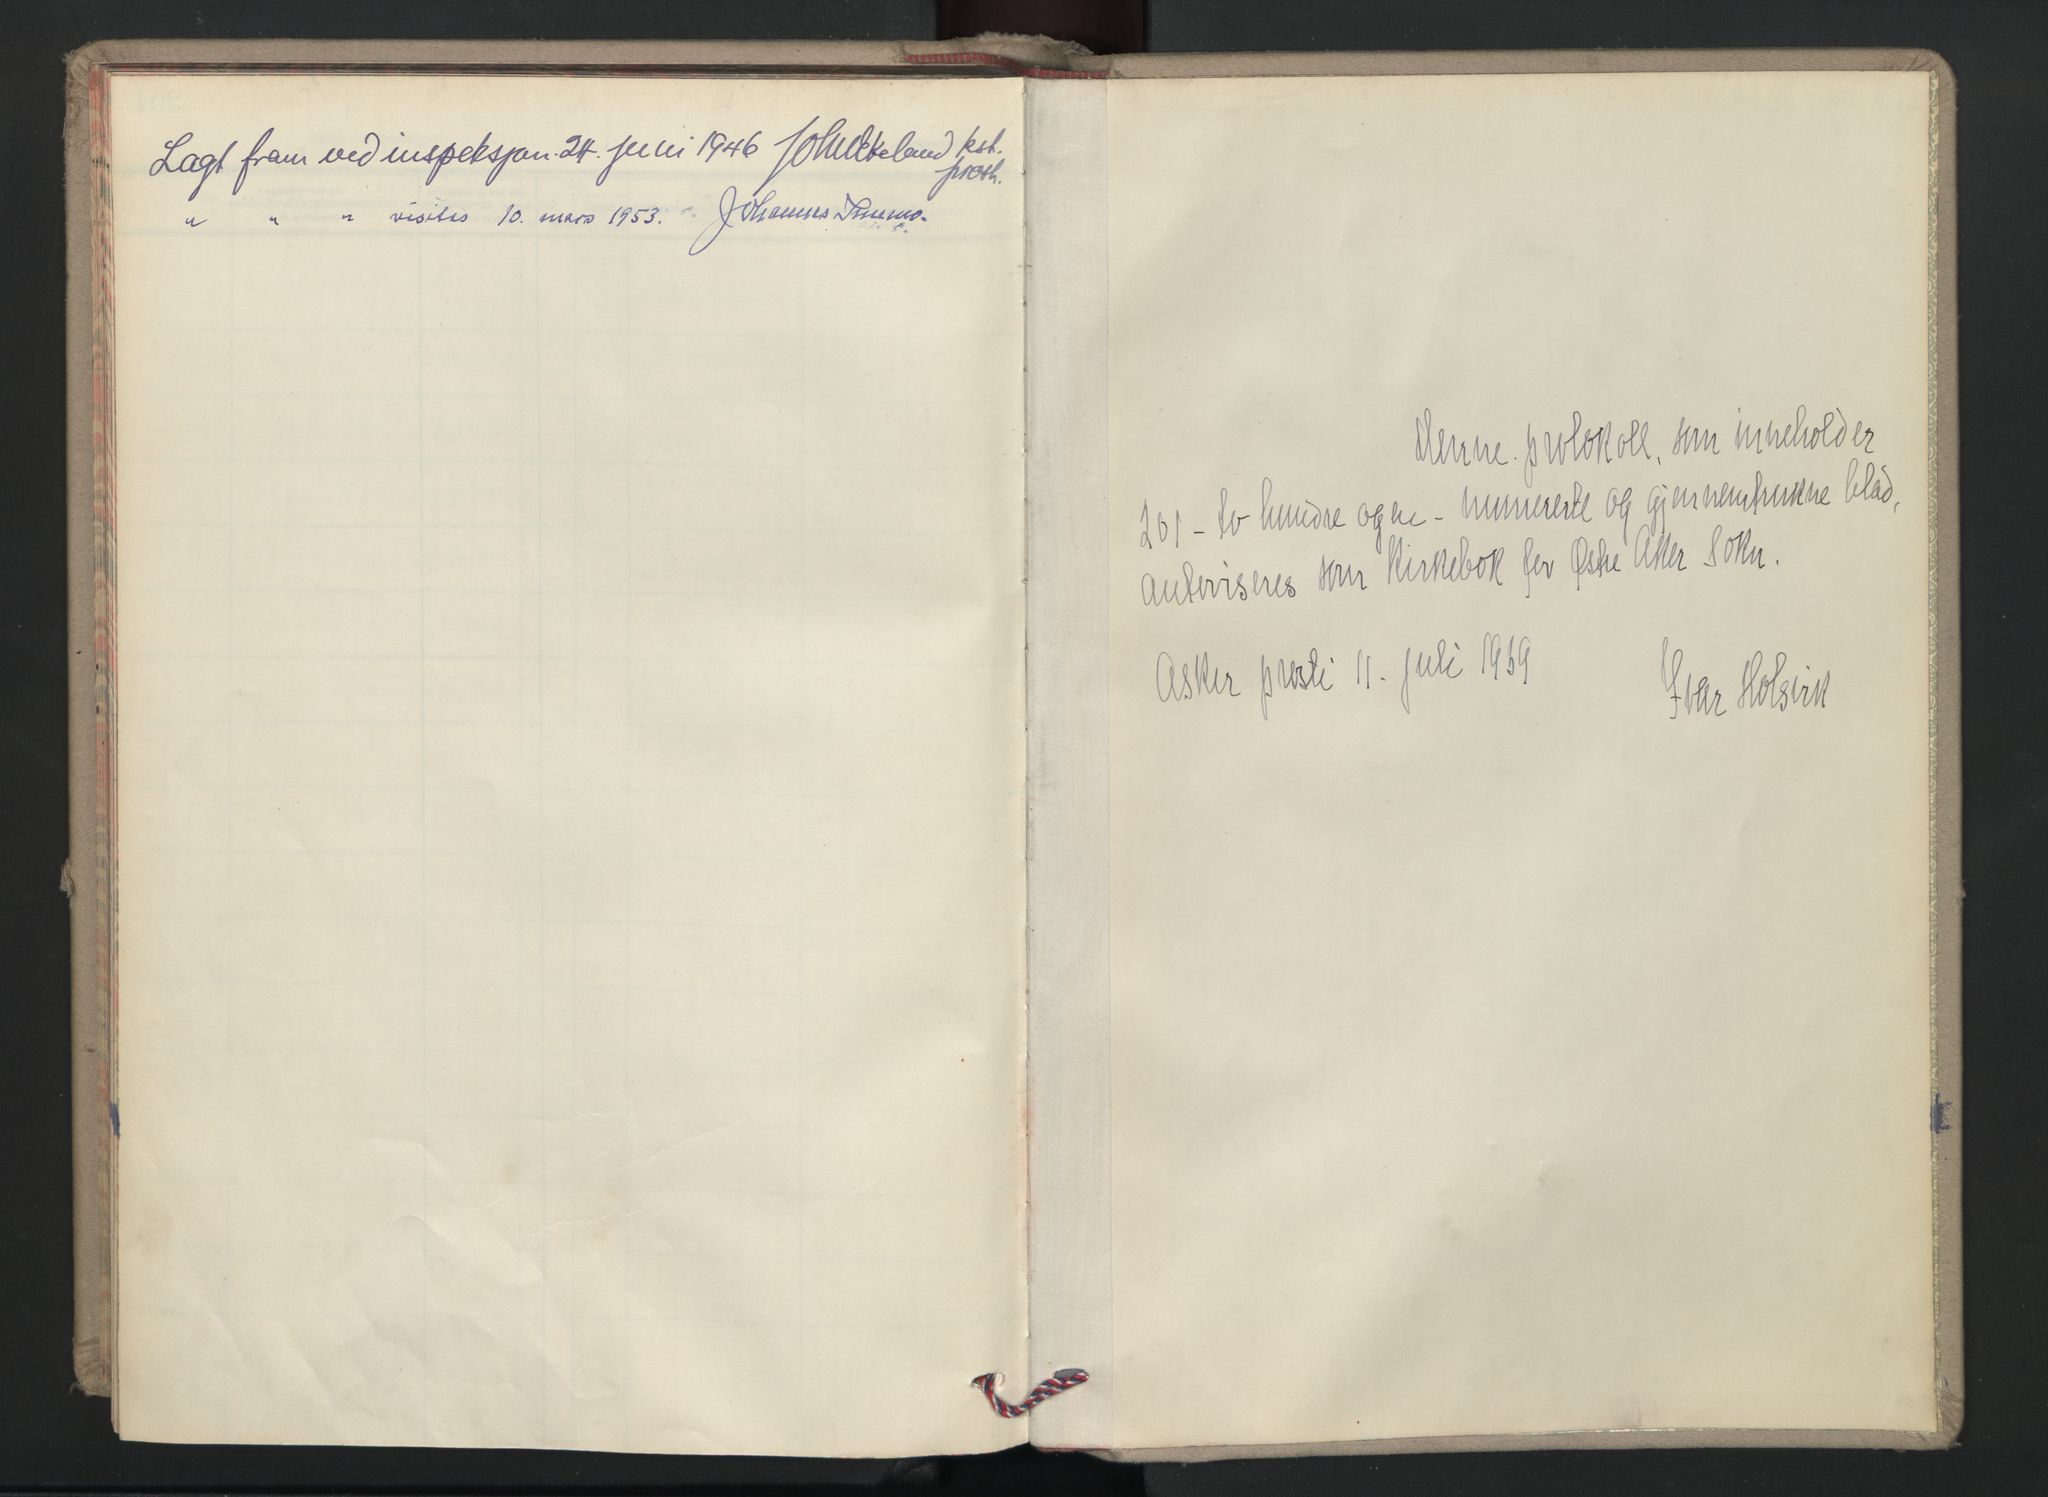 Lagt fram ved inspeksjon 24. juni 1946 kst.
prost.
" " " visitas 10. mars 1953. Johannes Smemo.
Denne protokoll, som inneholder
201 - to hundre og en - numererte og gjennemtrukne blad,
autoriseres som Kirkebok for Østre Aker Sokn.
Asker prosti 11. juli 1939
Ivar Holsvik